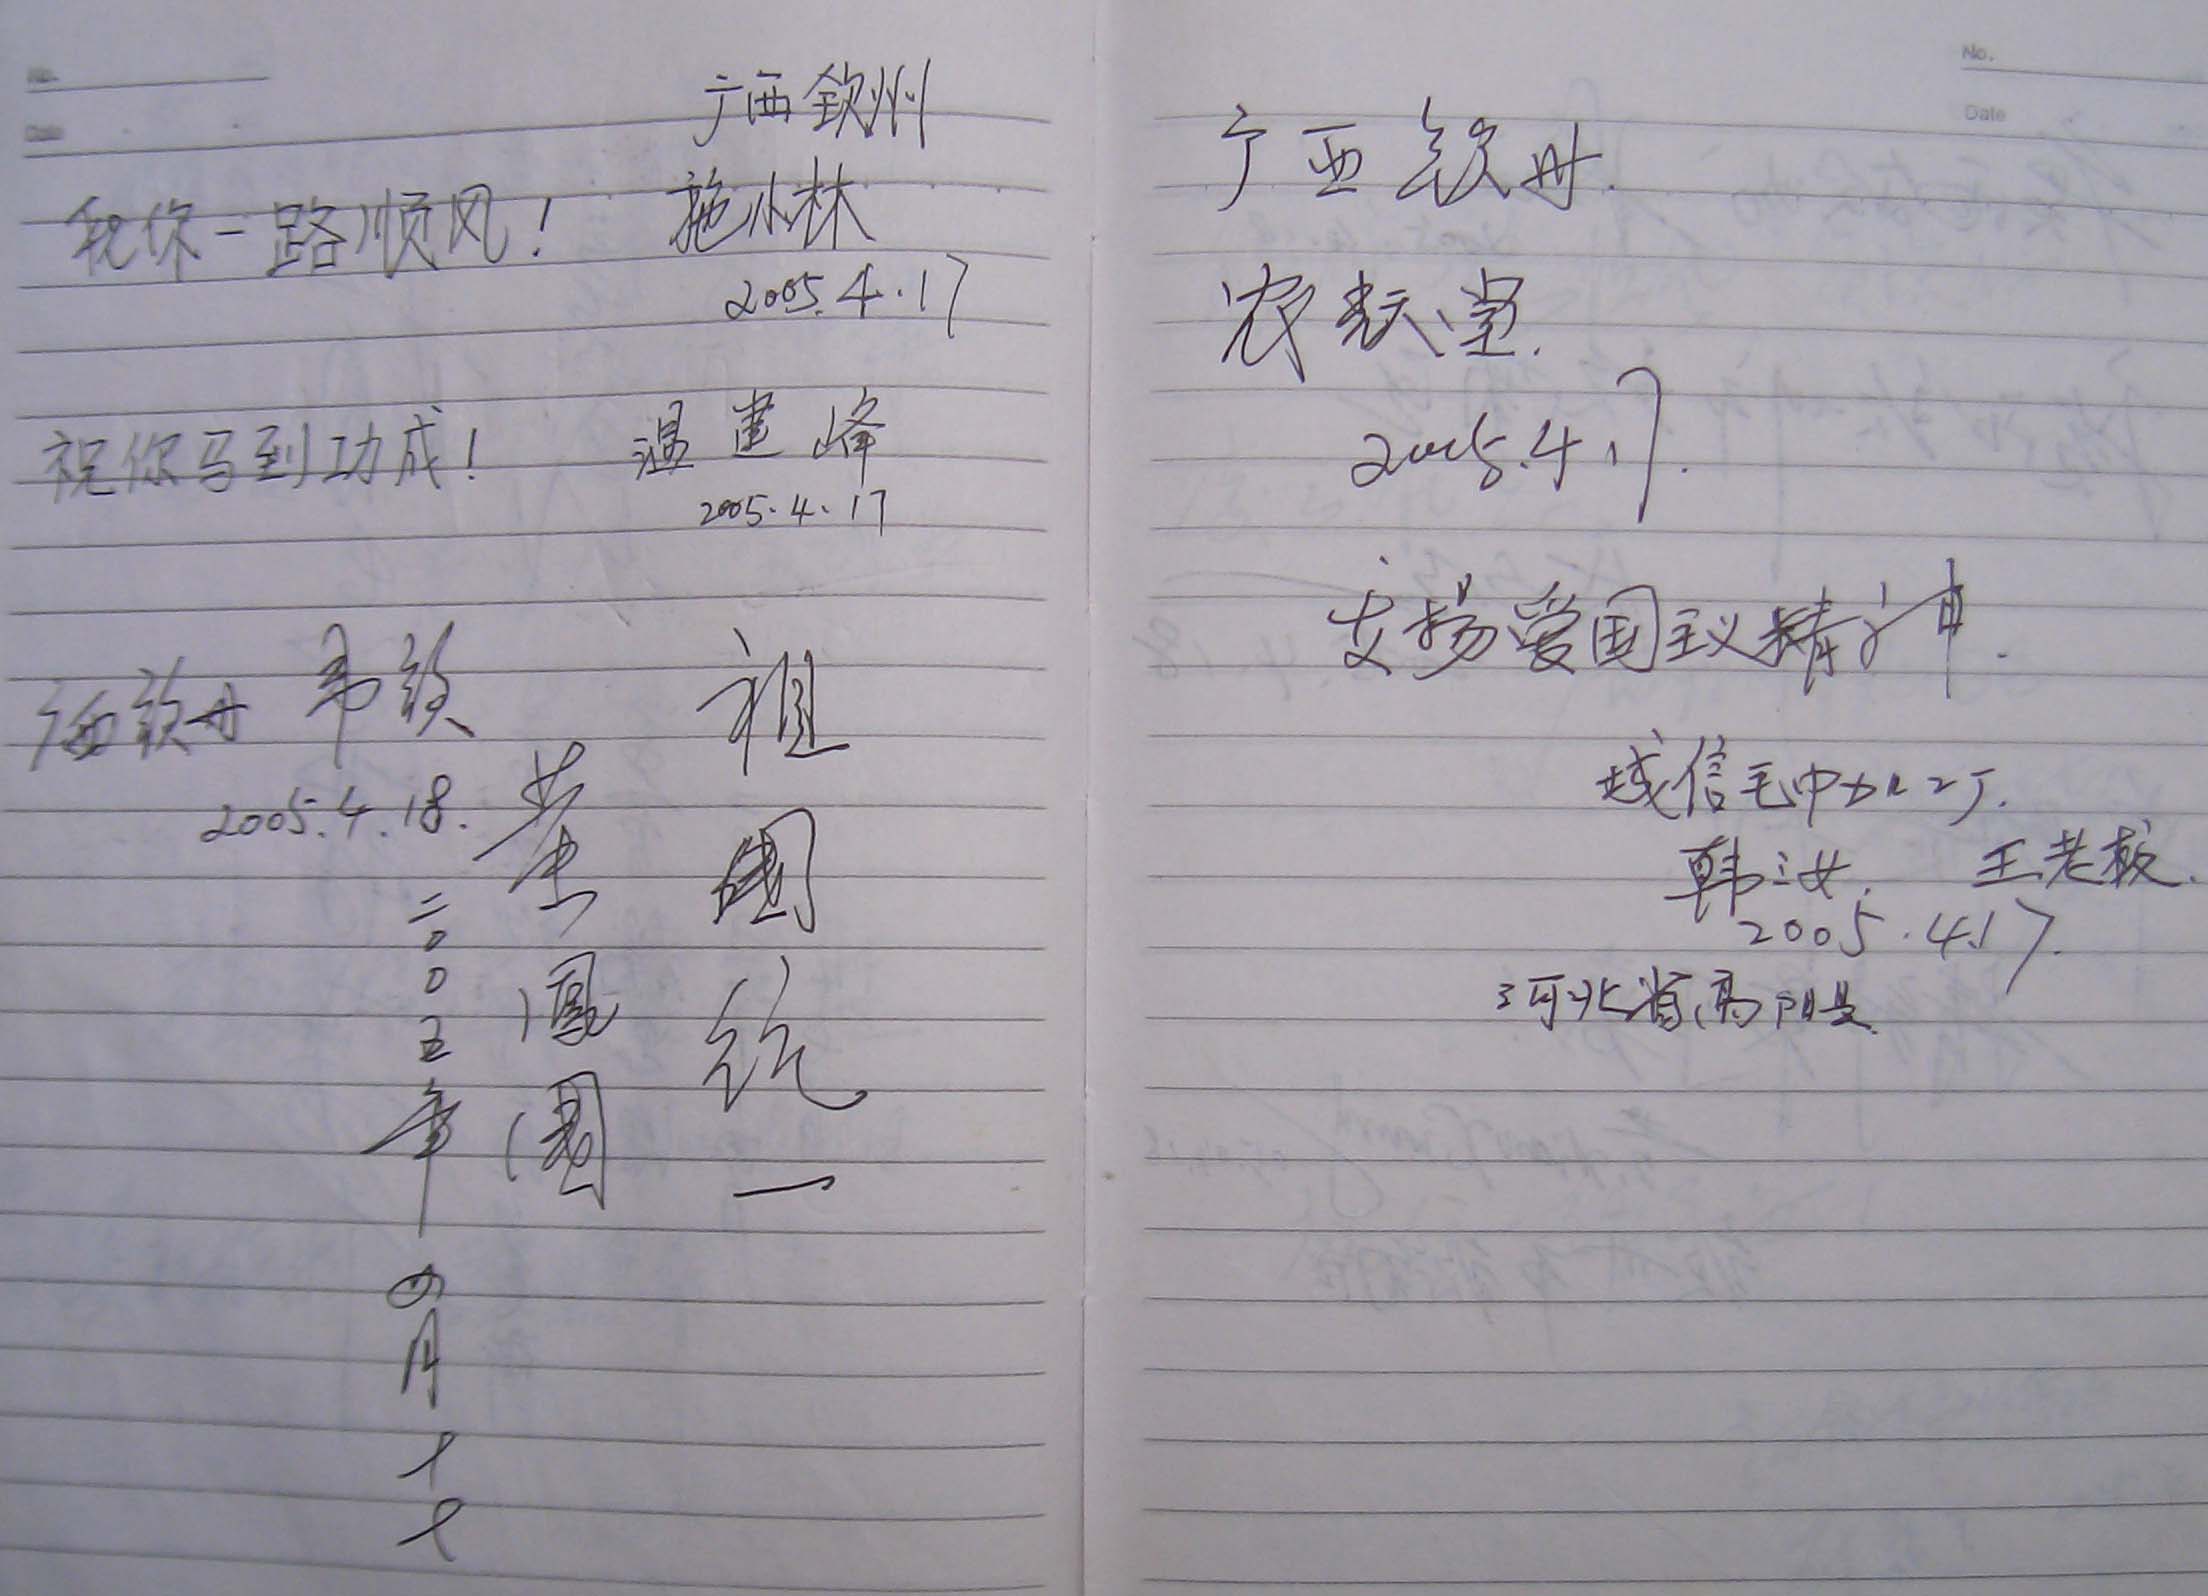 No.
Date
广西钦州
祝你一路顺风！ 施小林
2005.4.17
祝你马到功成！ 温建峰
2005.4.17
广西钦州
2005.4.18.
祖国统一
二00五年四月十七
No.
Date
广西钦州.
农 堂.
2005.4.17.
发扬爱国主义精神.
诚信毛巾加工厂.
韩三女. 王老板.
2005.4.17.
河北省高阳县.